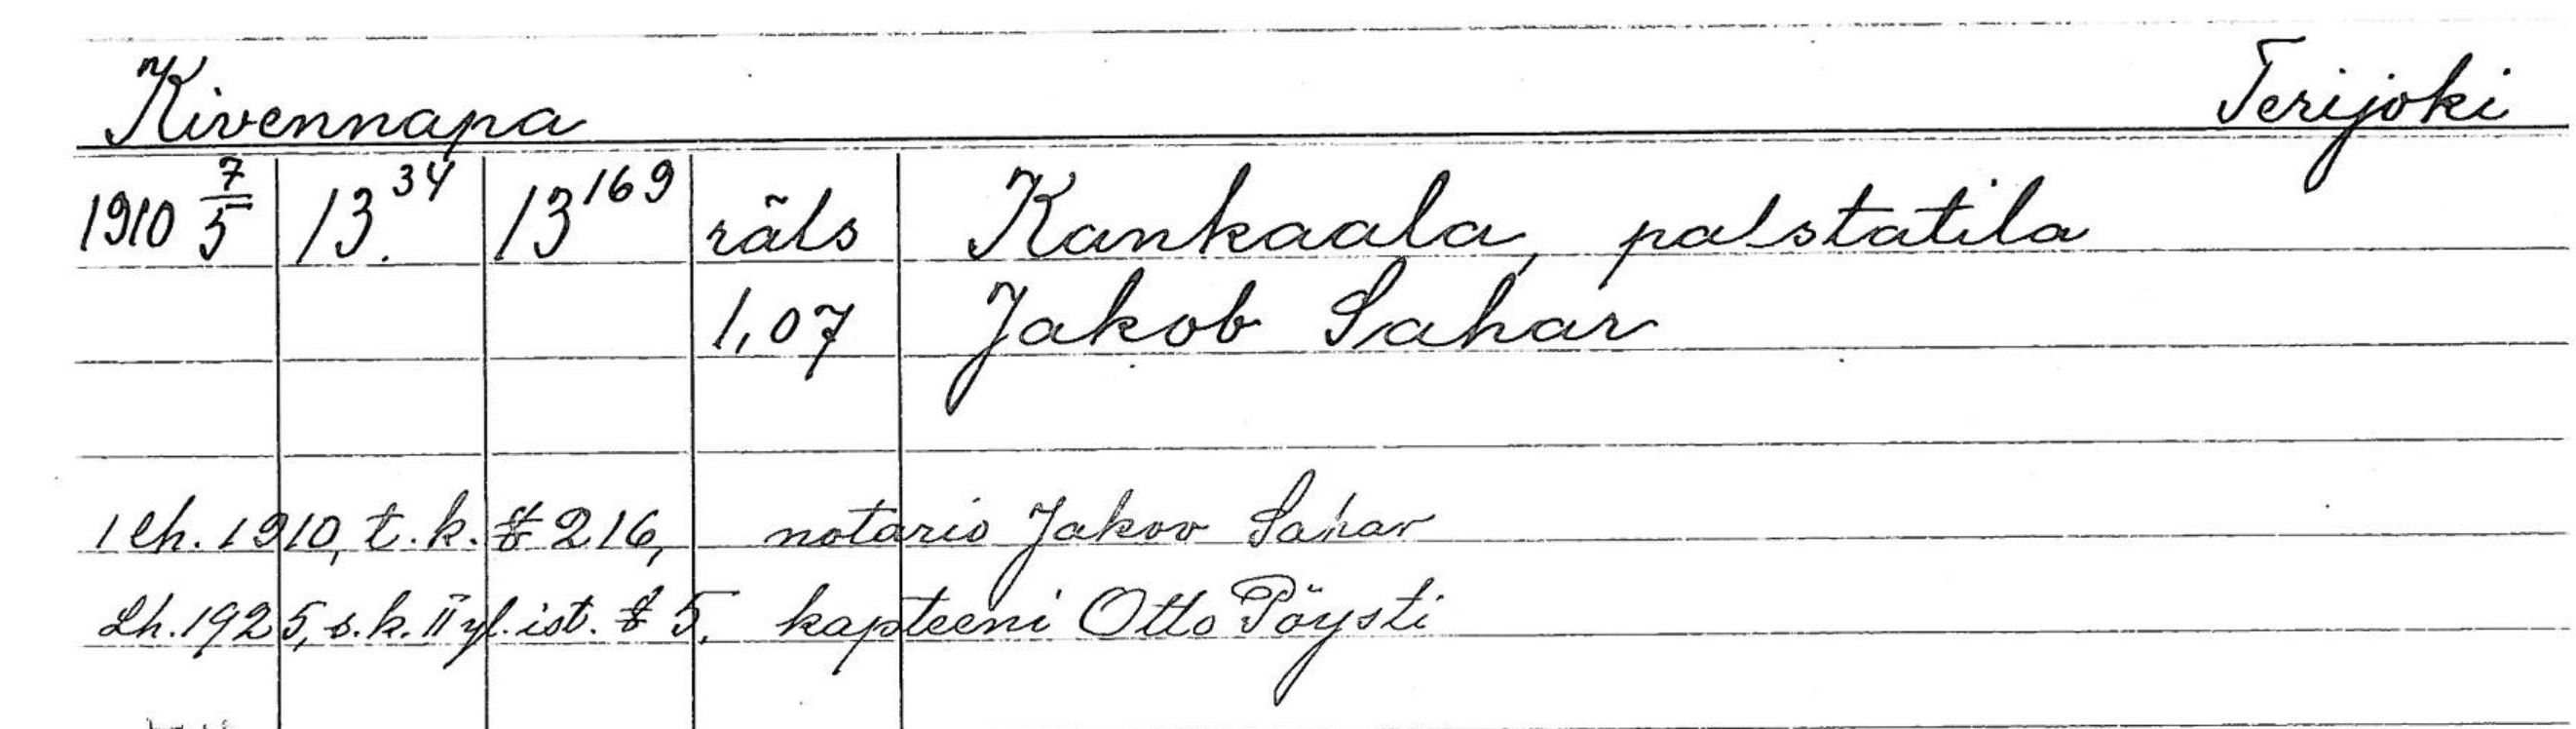 Kivennapa Terijoki
1910 7/5 13.³⁴ 13¹⁶⁹ räls Kankaala, palstatila
1,07 Jakob Sahar
1 lh. 1910, t.k. § 216, notario Jakov Sahar
Lh. 1925, s.k. II yl. ist. § 5. kapteeni Otto Pöysti